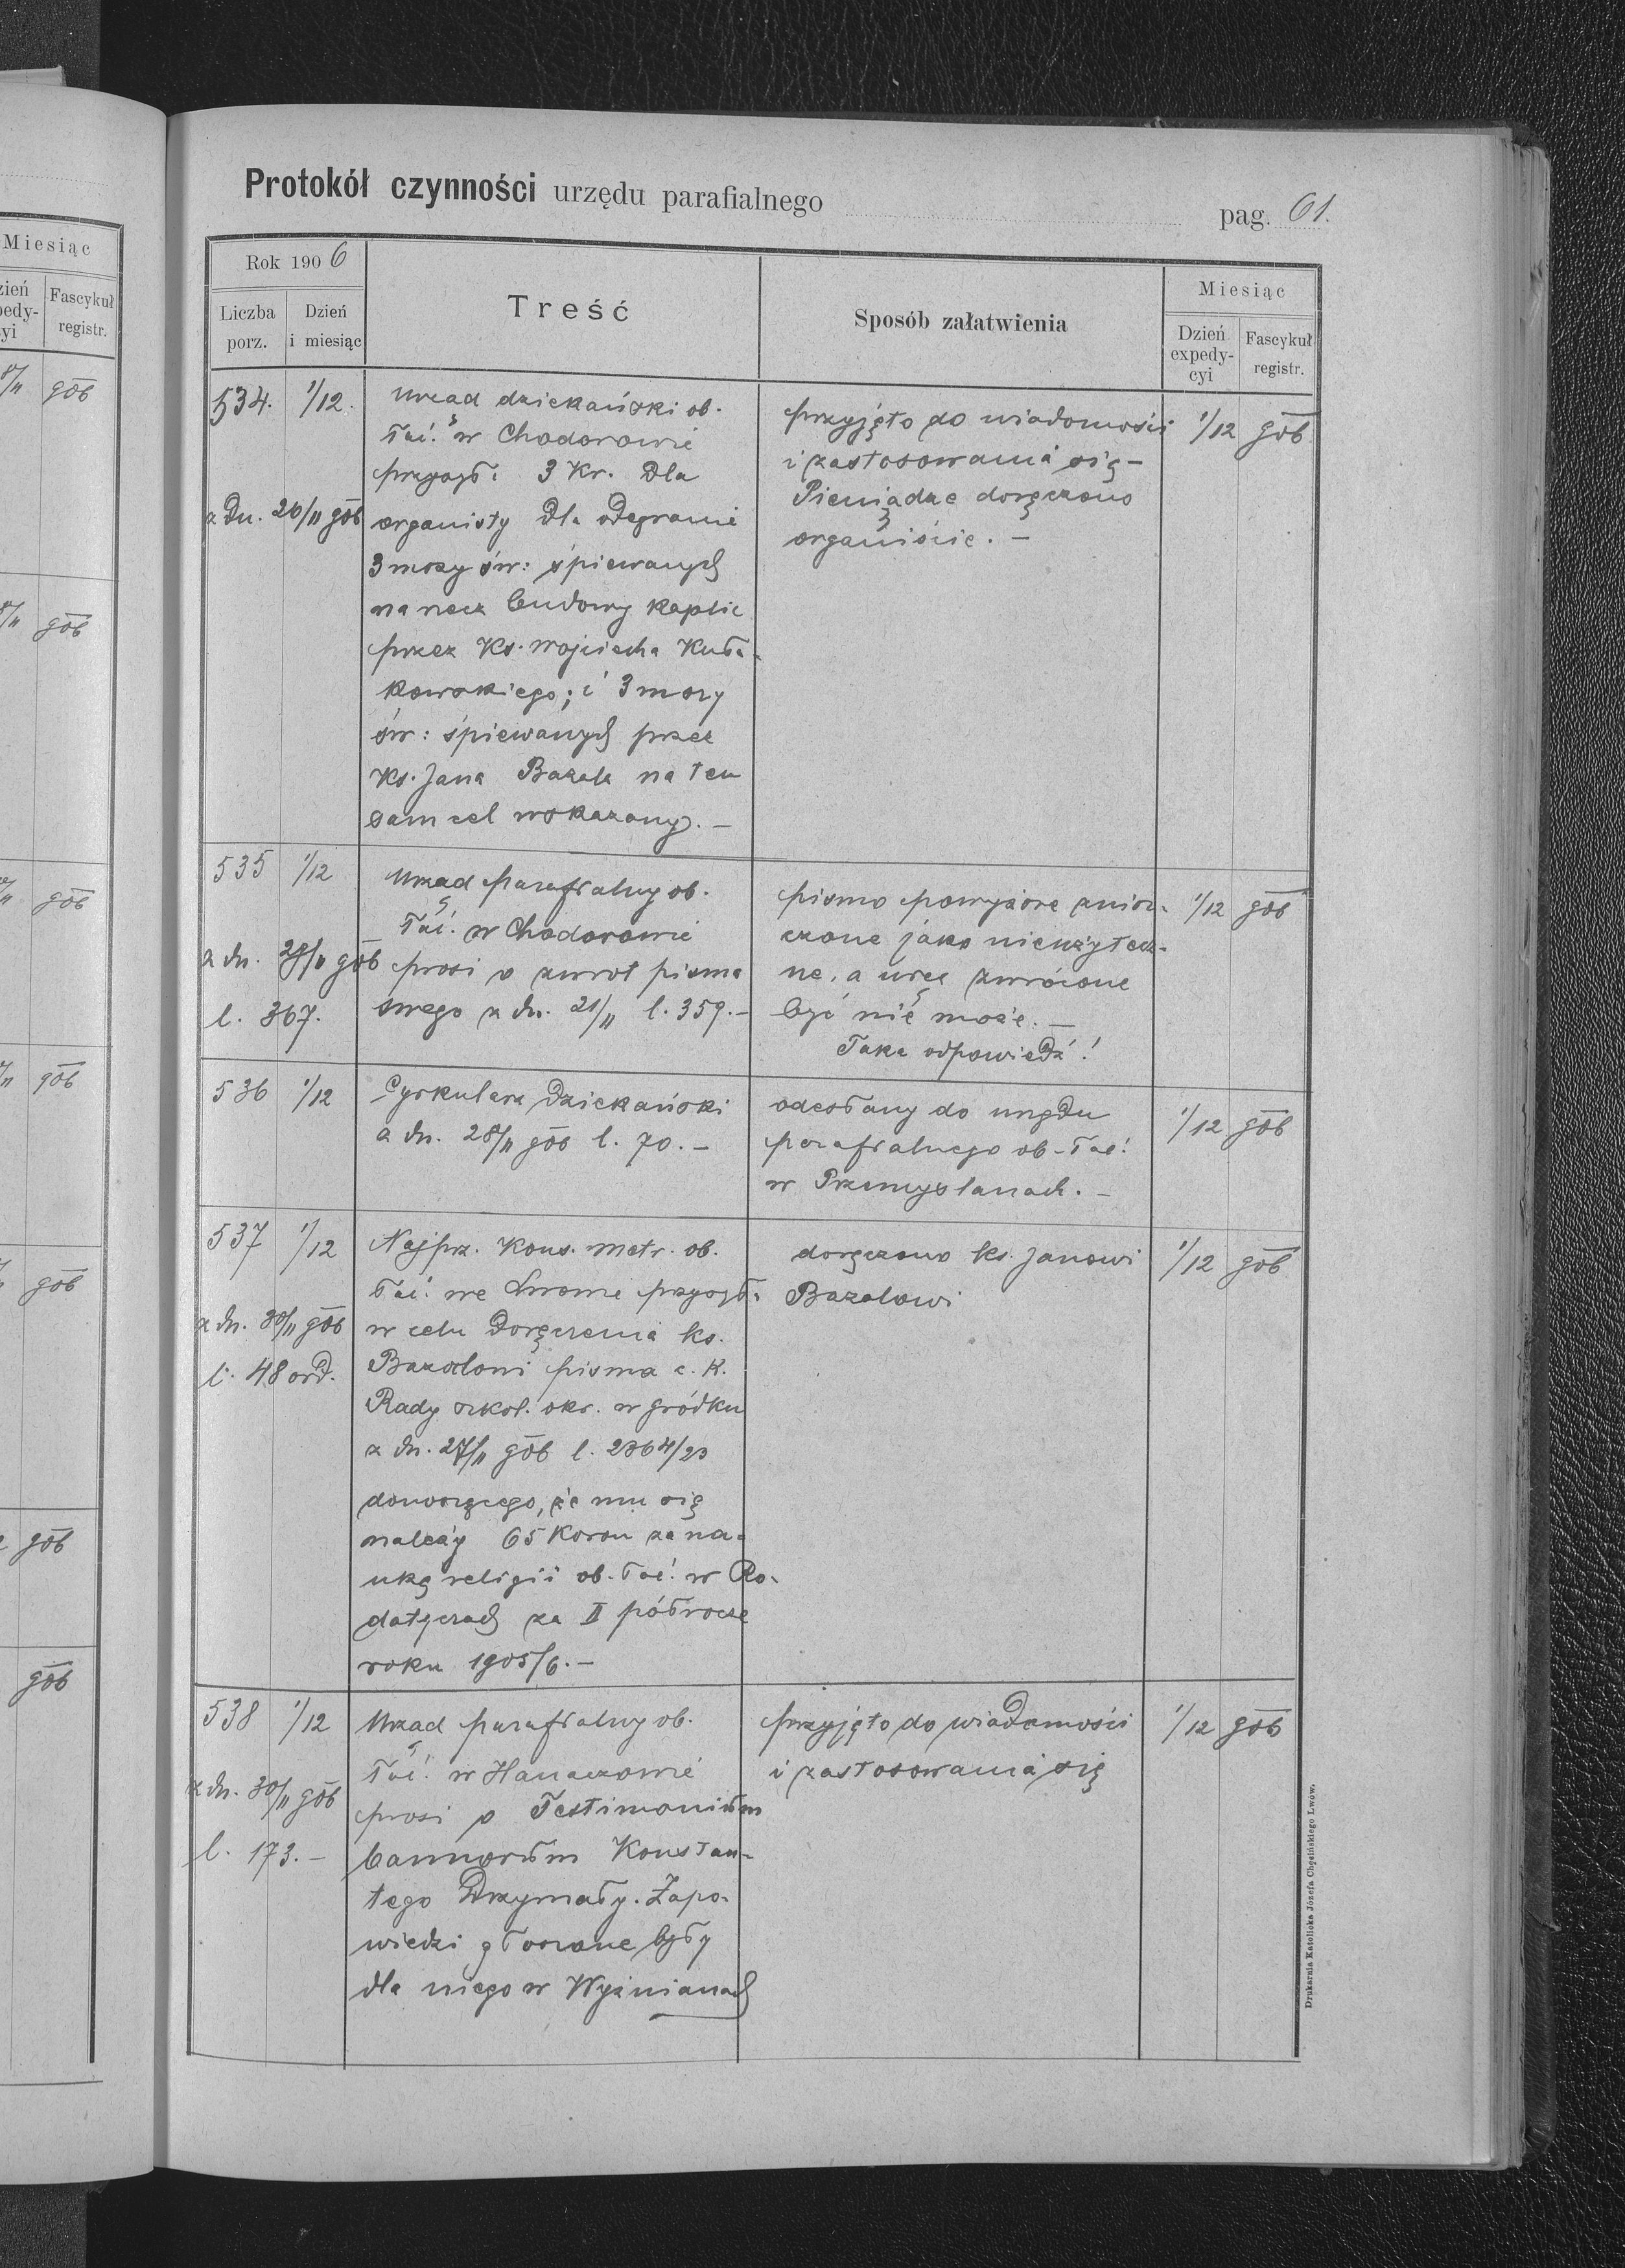 Miesiąc
Fascykuł
registr.
8/11 gōb
gōb
gōb
gōb
gōb
gōb
gōb
Protokół czynności urzędu parafialnego pag. 61.
Rok 1906
Liczba porz.
Dzień i miesiąc
Treść
Sposób załatwienia
Miesiąc
Dzień expedy-cyi
Fascykuł registr.
534. 1/12.
z dn. 20/11 gōb
Urząd dziekański ob.
łać. w Chodorowie
przysył: 3 Kr. dla
organisty dla odegranie
3 mszy św: śpiewanych
na rzecz budowy kaplic
przez Ks. Wojciecha Kuła-
kowskiego; i 3 mszy
św: śpiewanych przez
Ks. Jana Bazala na ten
sam cel wskazany. —
przyjęto do wiadomości
i zastosowania się —
Pieniądze doręczono
organiście. —
1/12 gōb
535 1/12
z dn. 29/11 gōb
l. 367.
Urząd parafialny ob.
łać. w Chodorowie
prosi o zwrot pisma
swego z dn. 21/11 l. 359. —
pismo powyższe znisz-
czone jako nieużytecz-
ne, a więc zwrócone
być nie może. —
Taka odpowiedź!
1/12 gōb
536 1/12
Cyrkularz Dziekański
z dn. 28/11 gōb l. 70. —
odesłany do urzędu
parafialnego ob. łać.
w Przemyślanach. —
1/12 gōb
537 1/12
z dn. 30/11 gōb
l. 48 ord.
Najprz. Kons. metr. ob.
łać. we Lwowie przysył.
w celu doręczenia ks.
Bazalowi pisma c. K.
Rady szkol. okr. w gródku
z dn. 27/11 gōb l. 2364/23
donoszącego, że mu się
należy 65 Koron za na-
ukę religii ob. łać. w Ro-
datyczach za II półrocze
roku 1905/6. —
doręczono ks. Janowi
Bazalowi
1/12 gōb
538 1/12
z dn. 30/11 gōb
l. 173. —
Urząd parafialny ob.
łać. w Hanaczowie
prosi o Testimonium
bannorum Konstan-
tego Drzymały. Zapo-
wiedzi głoszone były
dla niego w Wyżnianach
przyjęto do wiadomości
i zastosowania się
1/12 gōb
Drukarnia Katolicka Józefa Chęcińskiego Lwów.